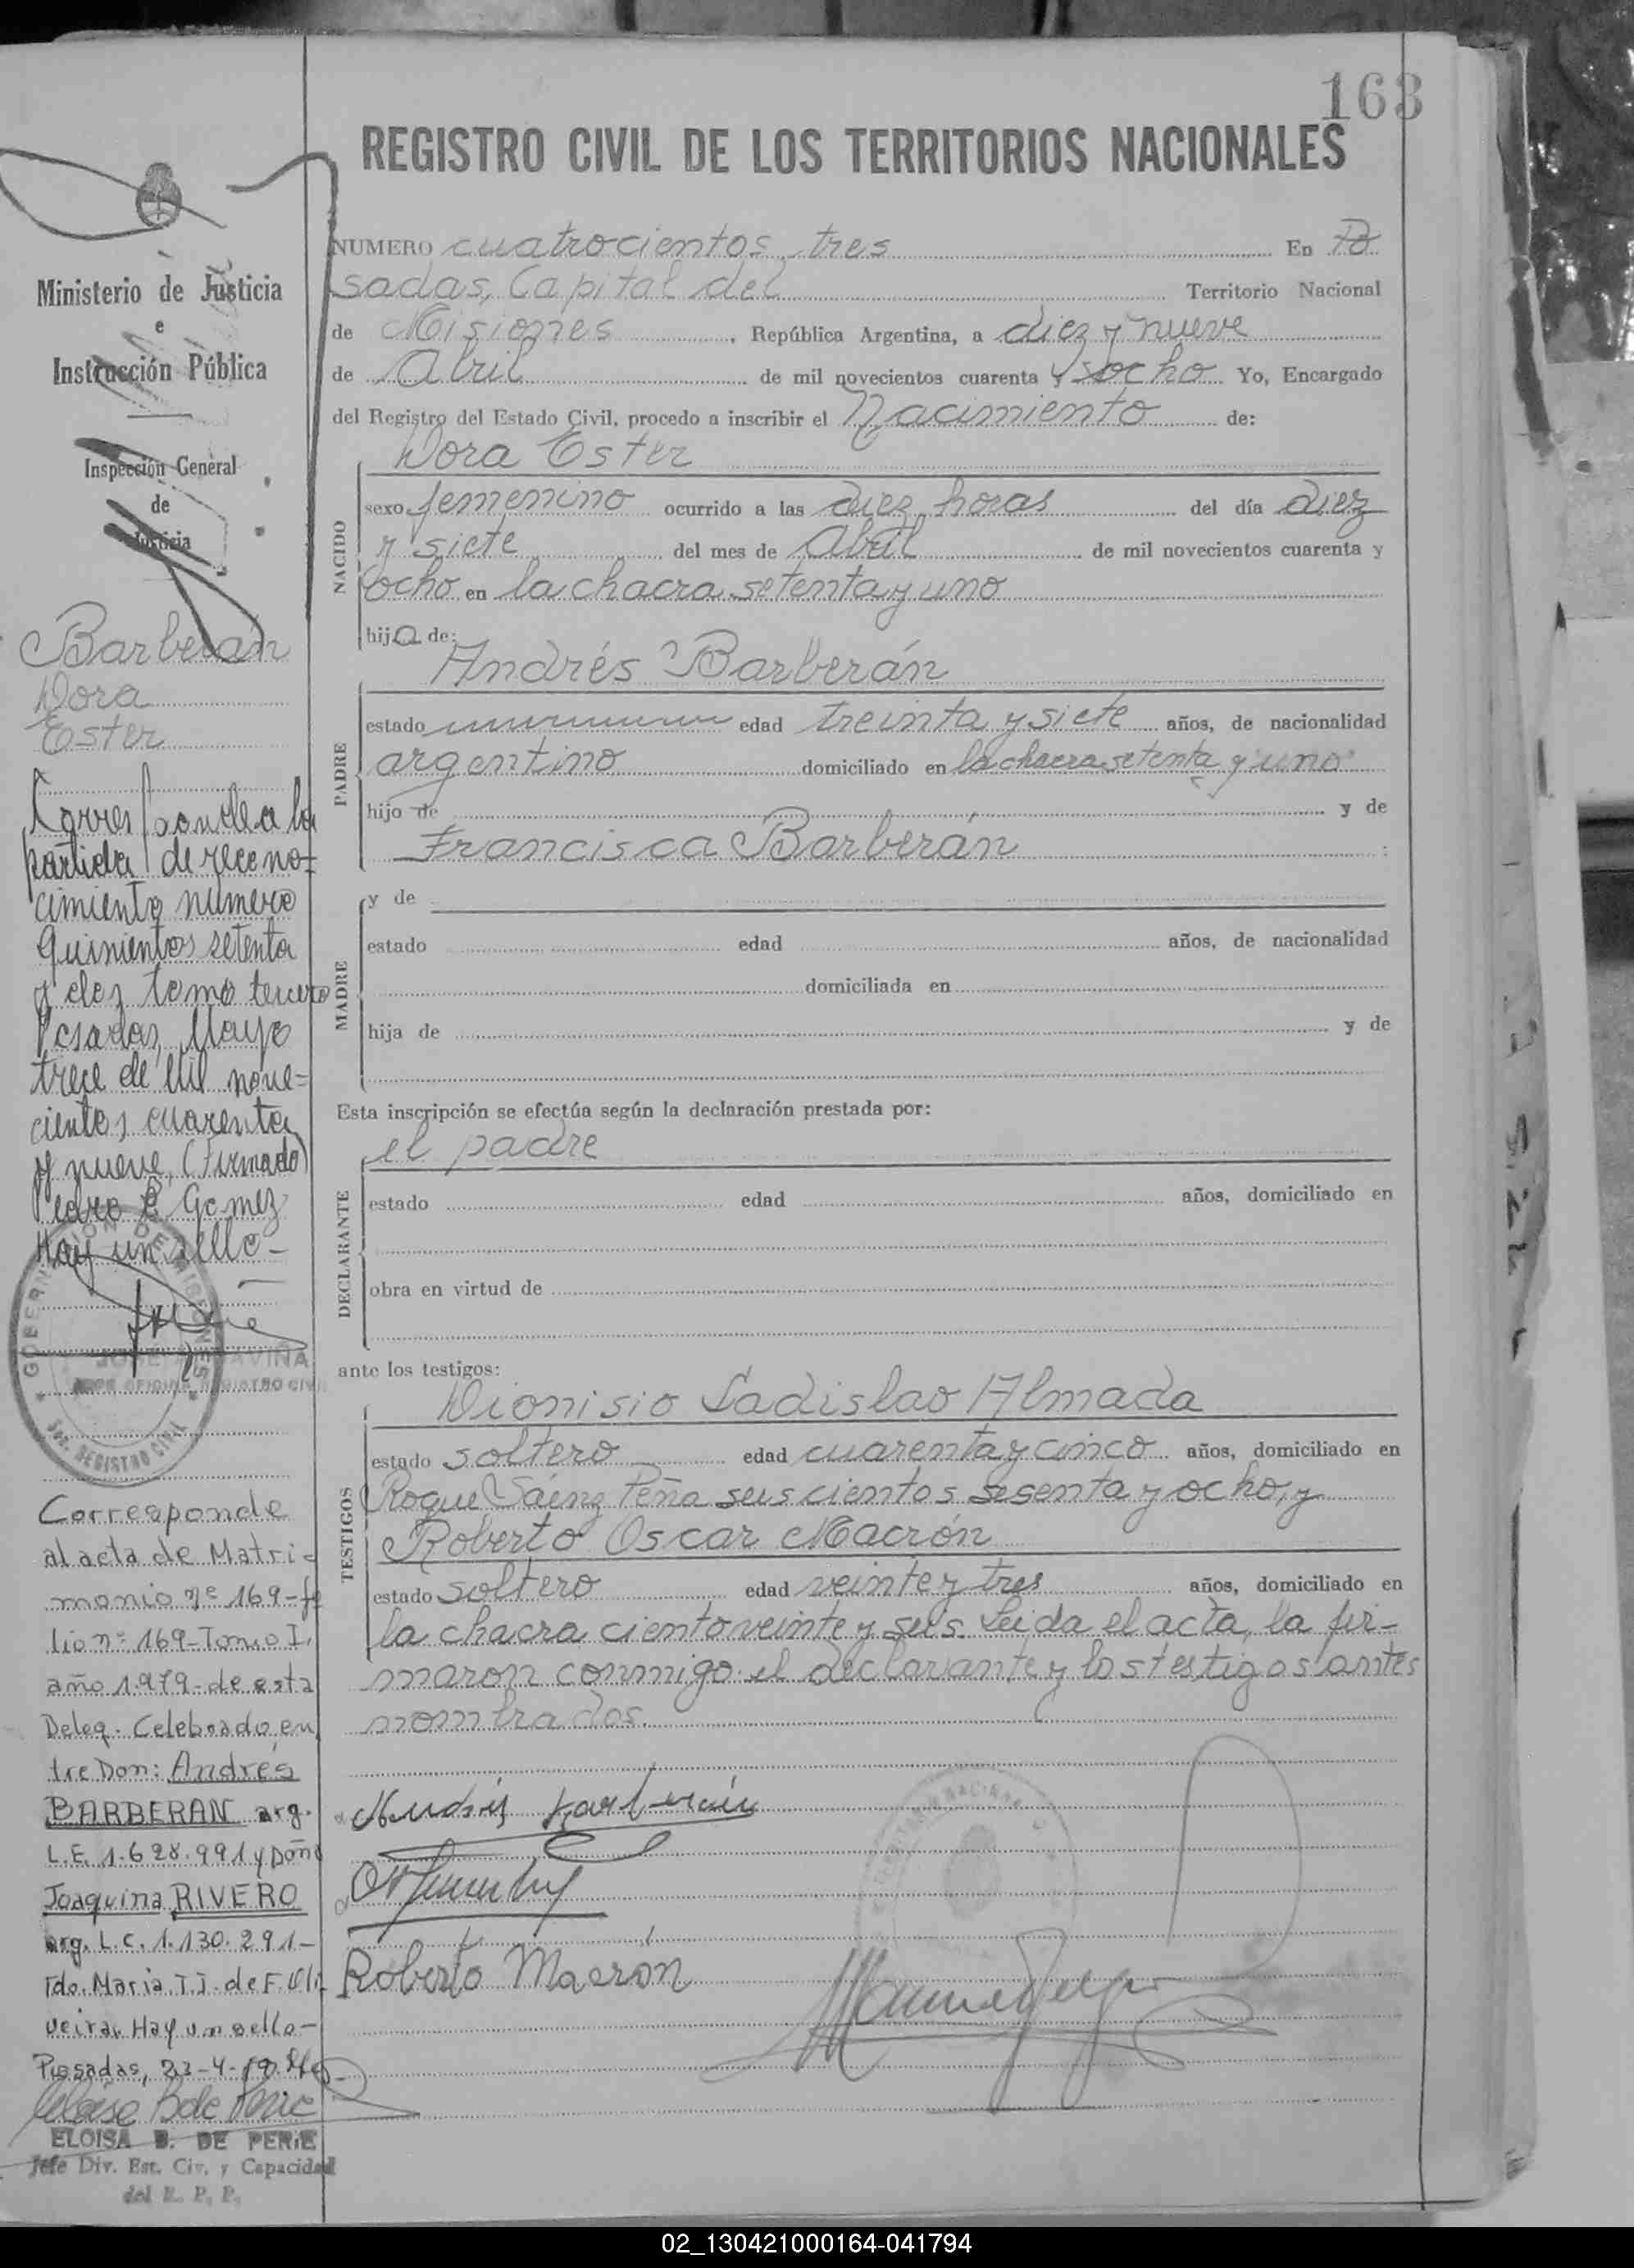 163
REGISTRO CIVIL DE LOS TERRITORIOS NACIONALES
NUMERO cuatrocientos tres En Po
sadas, Capital del Territorio Nacional
de Misiones, República Argentina, a diez y nueve
de Abril de mil novecientos cuarenta y ocho Yo, Encargado
del Registro del Estado Civil, procedo a inscribir el Nacimiento de:
NACIDO
Dora Ester
sexo femenino ocurrido a las diez horas del día diez
y siete del mes de Abril de mil novecientos cuarenta y
ocho en la chacra setenta y uno
hija de:
PADRE
Andrés Barberán
estado edad treinta y siete años, de nacionalidad
argentino domiciliado en la chacra setenta y uno
hijo de y de
Francisca Barberán
MADRE
y de
estado edad años, de nacionalidad
domiciliada en
hija de y de
Esta inscripción se efectúa según la declaración prestada por:
DECLARANTE
el padre
estado edad años, domiciliado en
obra en virtud de
ante los testigos:
TESTIGOS
Dionisio Ladislao Almada
estado soltero edad cuarenta y cinco años, domiciliado en
Roque Sáenz Peña seiscientos sesenta y ocho, y
Roberto Oscar Macrón
estado soltero edad veinte y tres años, domiciliado en
la chacra ciento veinte y seis. Leída el acta, la fir-
maron conmigo el declarante y los testigos antes
nombrados.
Andrés Barberán
Roberto Macrón
Ministerio de Justicia
e
Instrucción Pública
Inspección General
de
Justicia
Barberán
Dora
Ester
Corresponde a la
partida de recono-
cimiento número
quinientos setenta
y dos tomo tercero
Posadas, Mayo
trece de Mil nove-
cientos cuarenta
y nueve, (Firmado)
Pedro E. Gomez
Hay un sello-
GOBERNACION DE MISIONES
REGISTRO CIVIL
JEFE OFICINA REGISTRO CIVIL
Corresponde
al acta de Matri-
monio nº 169-fo
lio nº 169-Tomo I.
año 1979-de esta
Deleg. Celebrado en
tre Don: Andrés
BARBERAN arg.
L.E. 1.628.991 y Doña
Joaquina RIVERO
arg. L.C. 1.130.291-
Fdo. Maria T.J. de F. Oli
veira. Hay un sello-
Posadas, 23-4-19
ELOISA B. DE PERIE
Jefe Div. Est. Civ. y Capacidad
del R. P. P.
02_130421000164-041794